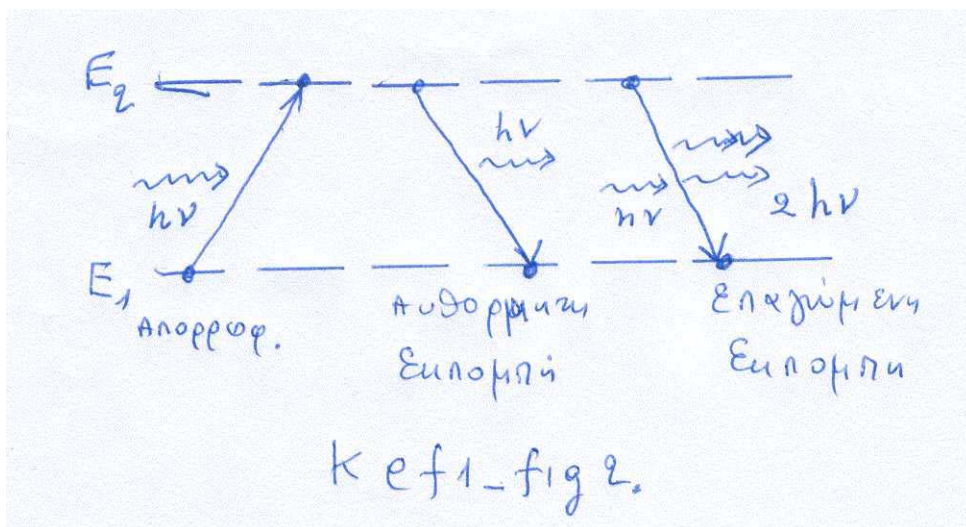 E₂
hν
hν
hν
2 hν
E₁
Απορροφ.
Αυθόρμητη
Εκπομπή
Επαγόμενη
Εκπομπη
Kef1_fig2.